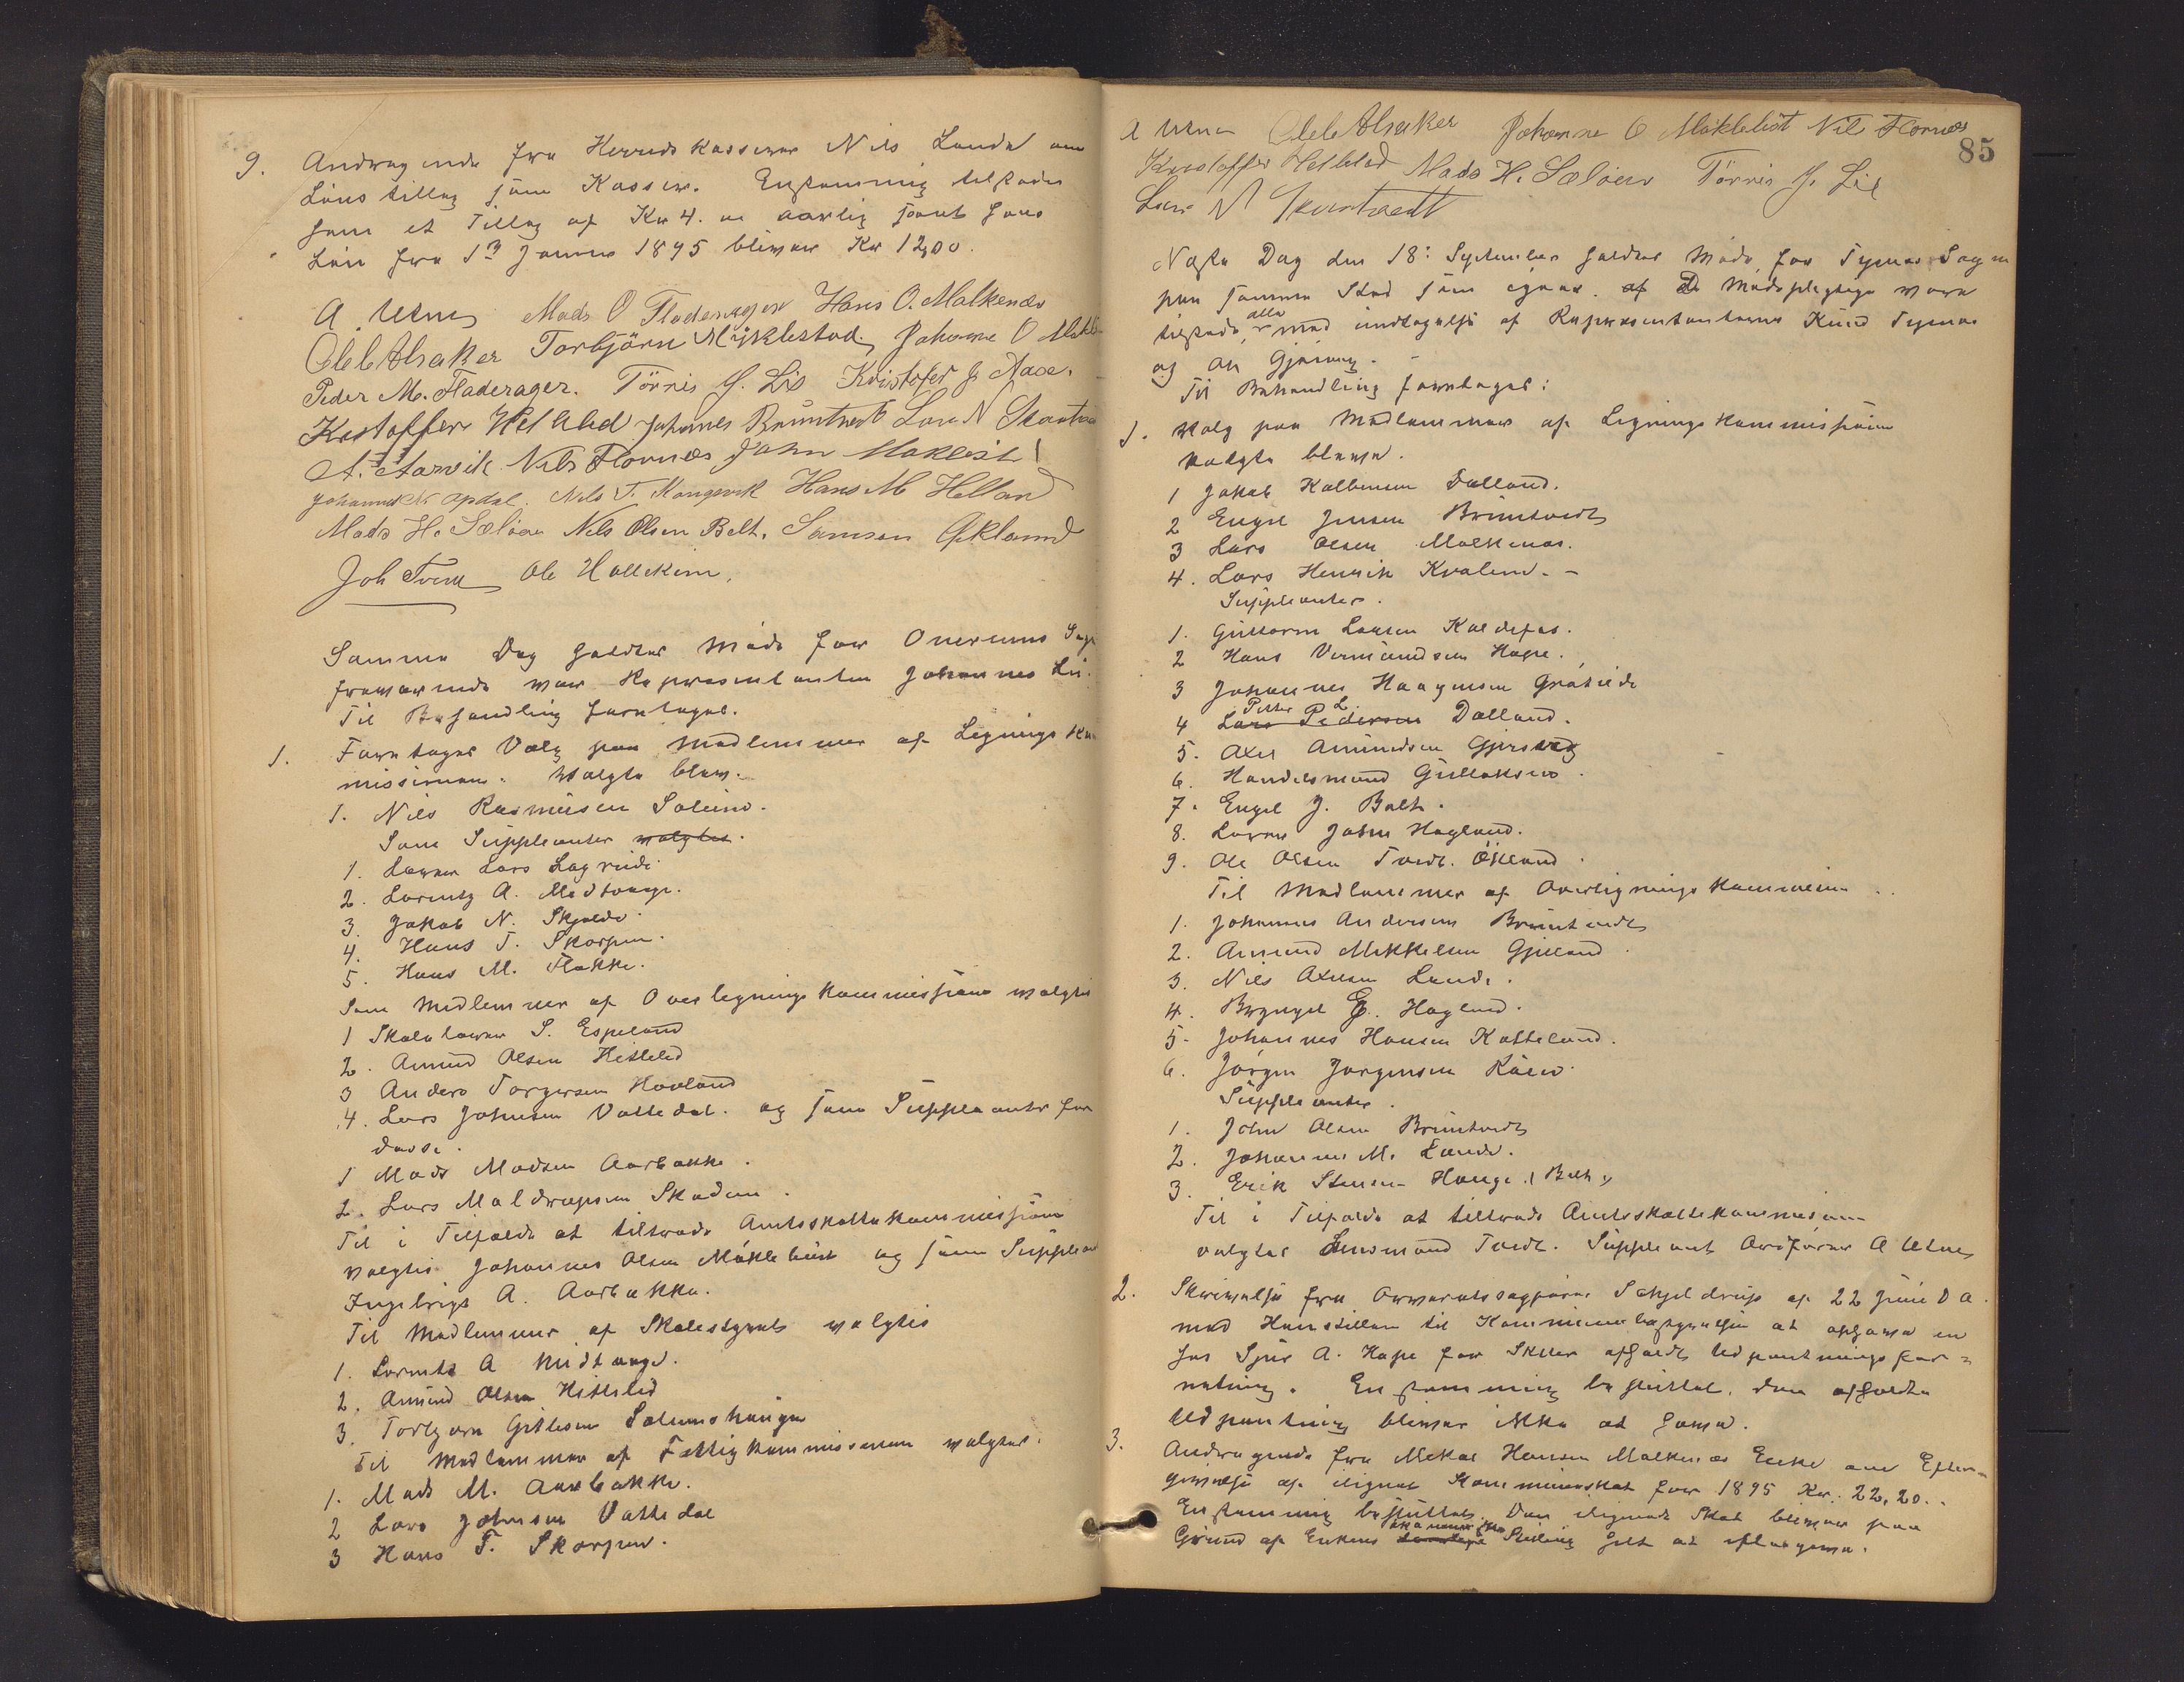 9. Andragende fra Herredskasserer Nils Lunde om
Lönstillæg som Kasserer. Enstemmig tilstodes
ham et Tillæg af Kr 4.00 aarlig saant hans
Lön fra 1ste Januar 1895 bliver Kr 1200.
A Utne Mads O Fladerager Hans O. Malkenæs
Ole L Alsaker Torbjörn Myklestad. Johannes O Mækle
Peder M. Fladerager. Törris J. Lie Kristofer J. Aase.
Kristoffer Helleland Johannes Bruntvedt Lars N Skartveit
A. Aarvik Nils Flornes John Mæklebust
Johannes N. Opdal. Nils T. Kongsvik Hans M Helland
Mads H. Sæløen Nils Olsen Balt. Samson Økland
Joh Tveit Ole Hallekim.
Samme Dag holdtes Møde for Onerems Sogn
fraværende var Repræsentanten Johannes Lie.
Til Behandling foretoges.
1. Foretoges Valg paa Medlemmer af Lignings Kom
missionen. Valgte blev.
1. Nils Rasmusen Solheim.
Som Suppleanter valgtes.
1. Lærer Lars Lageide
2. Lorentz A. Midtvaage.
3. Jakob N. Skjelde.
4. Hans T. Skorpen.
5. Hans M. Flakke.
Som Medlemmer af Overligningskommissionen valgtes
1 Skolelærer S. Espeland
2. Amund Olsen Hetleled
3 Anders Torgersen Hovland
4. Lars Johnsen Vattedal. og som Suppleanter for
disse.
1 Mads Madsen Aarbakke.
2. Lars Maldvægsen Skaden.
Til i Tilfælde at tiltræde Amtsskattekommissionen
valgtes Johannes Olsen Mæklebust og som Suppleant
Ingebrigt A. Aarbakke.
Til Medlemmer af Skolestyret valgtes
1. Lorentz A Midtvaage.
2. Amund Olsen Hetleled
3. Torbjørn Gitlesen Solemshaugen
Til Medlemmer af Fattigkommissionen valgtes.
1. Mads M. Aarbakke.
2 Lars Johnsen Vattedal
3 Hans T. Skorpen.
85
A Utne Ole L Alsaker Johannes O Mæklebust Nils Flornes
Kristoffer Helleland Mads H. Sæløen Törris J. Lie
Lars N Skartvedt
Næste Dag den 18: September holdtes Møde for Tysnes Sogn
paa samme Sted som igaar. af De Mødepligtige vare
tilstede alle med undtagelse af Repræsentanterne Knud Tysnes
og An Gjerning.
Til Behandling foretoges:
1. Valg paa Medlemmer af Ligningskommissionen
valgte bleve.
1 Jakob Kolbensen Dalland.
2 Engel Jensen Bruntvedt
3 Lars Olsen Malkenæs.
4. Lars Henrik Kvalem.
Suppleanter.
1. Guttorm Larsen Kaldefos.
2 Hans Vermundsen Hope.
3 Johannes Haagensen Gratveide
4 Lars Pedersen Petter L. Dalland.
5. Axel Amundsen Gjersvig
6. Handelsmand Gullaksen.
7. Engel J. Balt.
8. Lærer John Hagland.
9. Ole Olsen Tvedt. Økland.
Til Medlemmer af Overligningskommissionen.
1. Johannes Andersen Bruntvedt
2. Amund Mikkelsen Gjelland.
3. Nils Axelsen Lunde.
4. Brynjel E. Hagland.
5. Johannes Hansen Katteland.
6. Jørgen Jørgensen Raen.
Suppleanter.
1. John Olsen Bruntvedt
2. Johannes M. Lunde.
3. Erik Stensen Hauge (Balt)
Til i Tilfælde at tiltræde Amtsskattekommissionen
valgtes Lensmand Tvedt. Suppleant Ordfører A Utne
2. Skrivelse fra Overretssagfører Schjelderup af 22 Juni D A.
med Henstillen til Kommunebestyrelsen at ophæve en
hos Sjur A. Hope for Skatter afholdt Udpantningsfor-
retning. Enstemmig besluttet. den afholdte
Udpantning bliver ikke at hæve.
3. Andragende fra Mikal Hansen Malkenæs Enke om Efter-
givelse af ilignet Kommuneskat for 1895 Kr. 22,20.
Enstemmig besluttet. Den ilignede Skat bliver paa
Grund af Enkens økonomiske Stilling helt at eftergive.